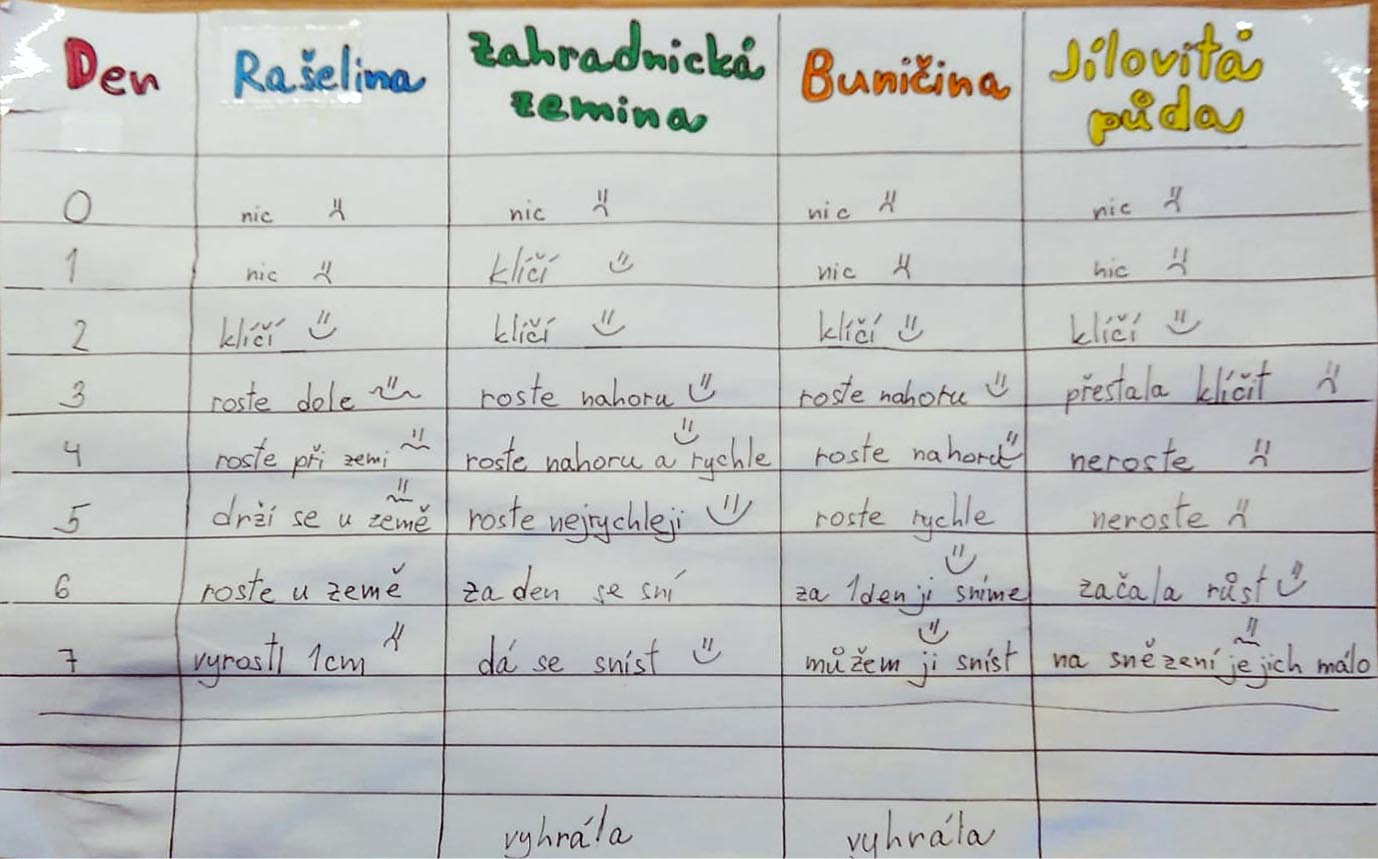 Den Rašelina Zahradnická zemina Buničina Jílovitá půda
0 nic nic nic nic
1 nic klíčí nic nic
2 klíčí klíčí klíčí klíčí
3 roste dole roste nahoru roste nahoru přestala klíčit
4 roste při zemi roste nahoru a rychle roste nahoru neroste
5 drží se u země roste nejrychleji roste rychle neroste
6 roste u země za den se sní za 1 den ji sníme začala růst
7 vyrostl 1cm dá se sníst můžem ji sníst na snězení je jich málo
vyhrála vyhrála